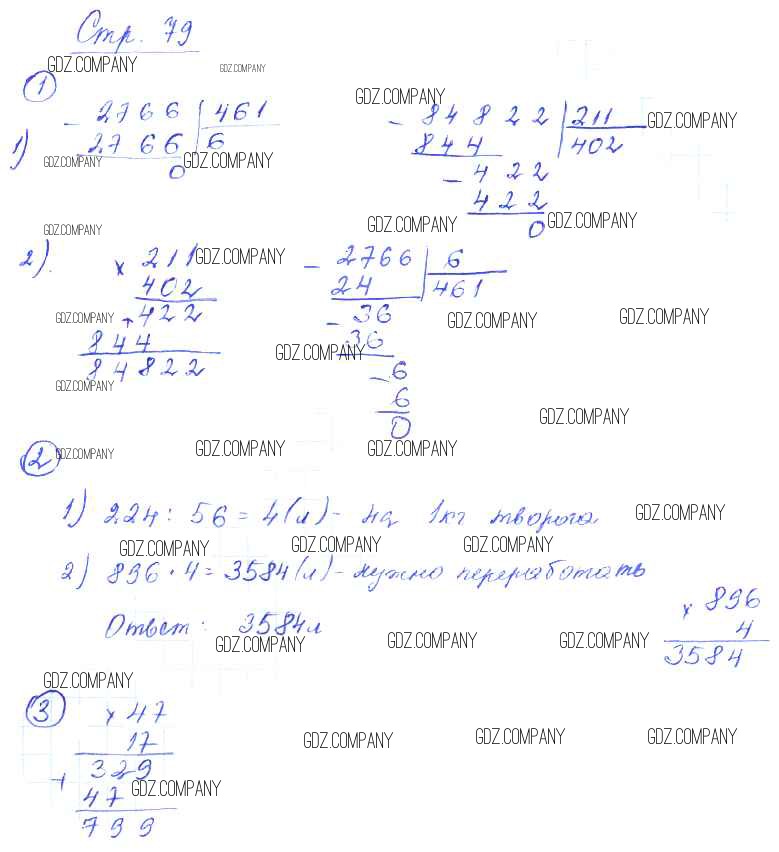 Стр. 79
GDZ.COMPANY GDZ.COMPANY
1
GDZ.COMPANY
1) - 2766 | 461
2766 6
0
GDZ.COMPANY GDZ.COMPANY
- 84822 | 211 GDZ.COMPANY
844 402
- 422
422
0 GDZ.COMPANY
GDZ.COMPANY GDZ.COMPANY
2). × 211 GDZ.COMPANY
402
+ 422
844
84822
GDZ.COMPANY
GDZ.COMPANY
- 2766 | 6
24 461
- 36
36
- 6
6
0
GDZ.COMPANY GDZ.COMPANY
GDZ.COMPANY
GDZ.COMPANY
2 GDZ.COMPANY GDZ.COMPANY GDZ.COMPANY
1) 224 : 56 = 4(л) - на 1кг творога. GDZ.COMPANY
GDZ.COMPANY GDZ.COMPANY GDZ.COMPANY
2) 896 · 4 = 3584(л) - нужно переработать
Ответ: 3584л
× 896
4
3584
GDZ.COMPANY GDZ.COMPANY GDZ.COMPANY
GDZ.COMPANY
3 × 47
17
+ 329
47
799
GDZ.COMPANY GDZ.COMPANY GDZ.COMPANY
GDZ.COMPANY